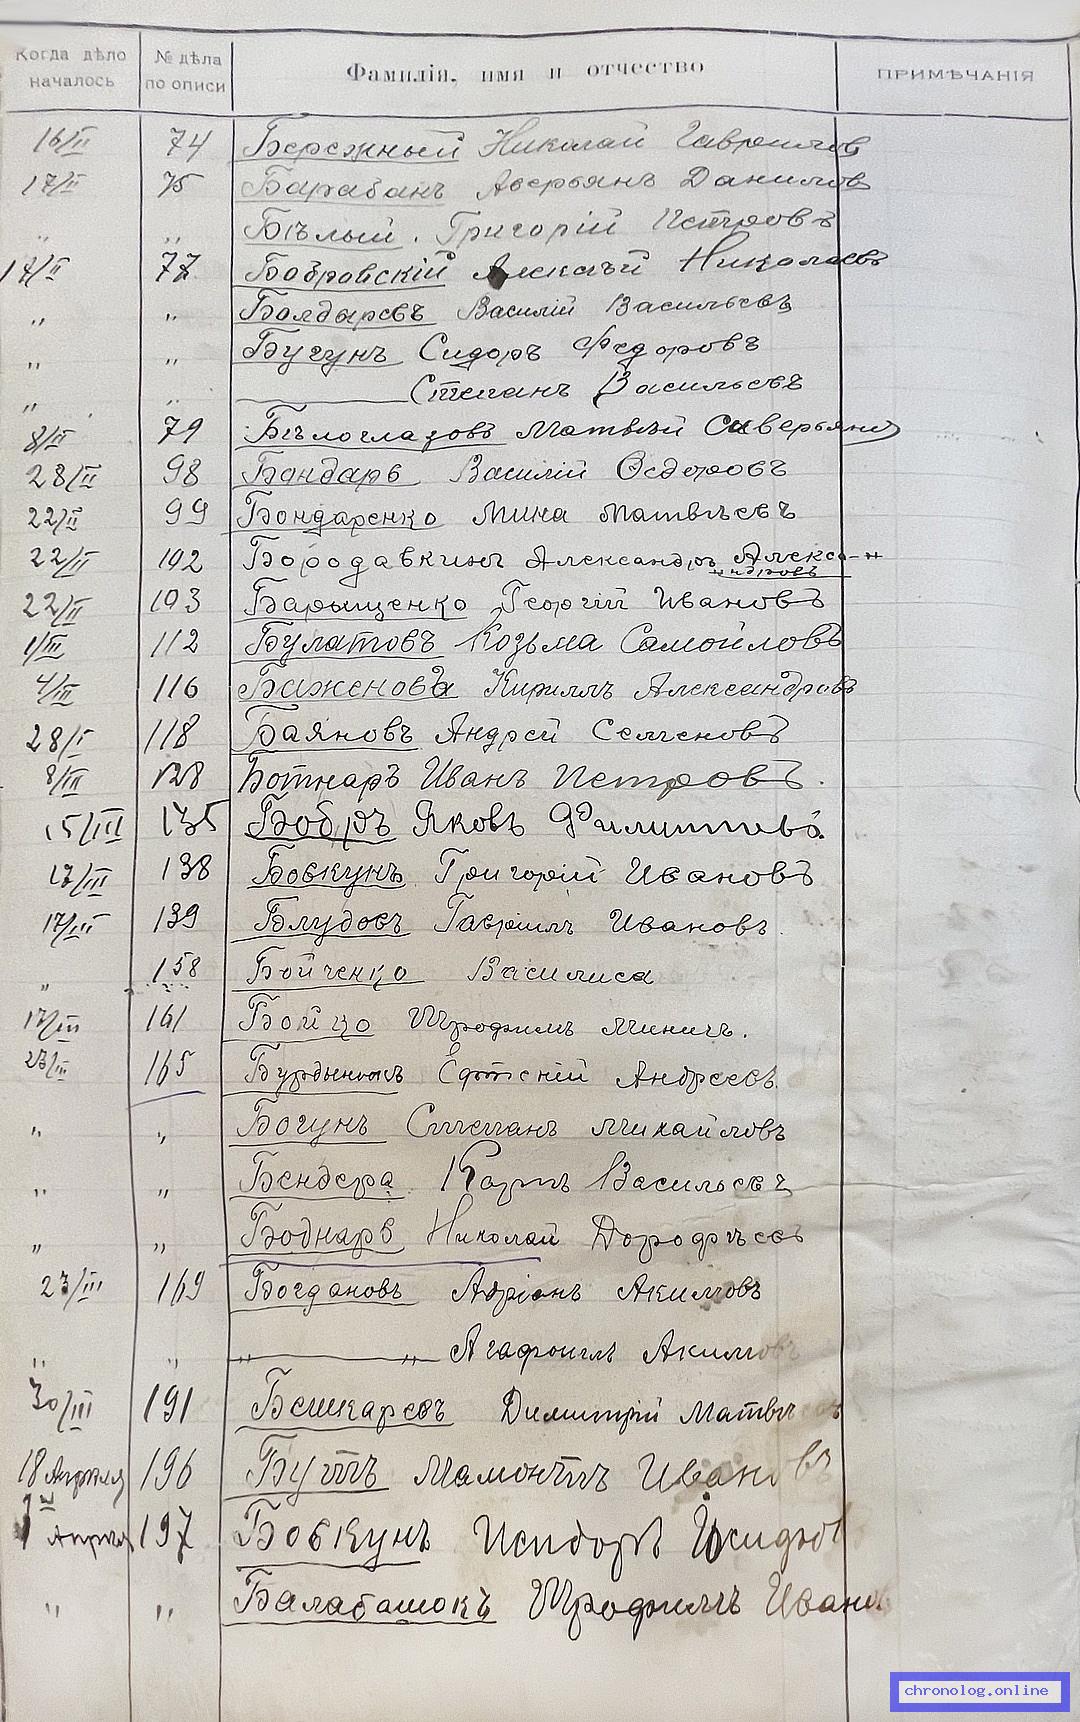 Когда дѣло началось № дѣла по описи Фамилія, имя и отчество ПРИМѢЧАНІЯ
16/II 74 Бережный Николай Гавриловъ
17/II 75 Барабанъ Аверьянъ Даниловъ
„ „ Бѣлый Григорій Петровъ
17/II 77 Бобровскій Алексѣй Николаевъ
„ „ Болдыревъ Василій Васильевъ
„ „ Бугунъ Сидоръ Федоровъ
„ „ Степанъ Васильевъ
8/II 79 Бѣлоглазовъ Матвѣй Сиверьяно
28/II 98 Бондарь Василій Ѳедоровъ
22/II 99 Бондаренко Мина Матвѣевъ
22/II 102 Бородавкинъ Александръ Алекса-
ндровъ
22/II 103 Барыщенко Георгій Ивановъ
1/III 112 Булатовъ Козьма Самойловъ
4/III 116 Баженовъ Кириллъ Александровъ
28/I 118 Баяновъ Андрей Семеновъ
8/III 128 Ботнаръ Иванъ Петровъ.
15/III 135 Бобръ Яковъ Филипповъ.
17/III 138 Бовкунъ Григорій Ивановъ
17/III 139 Блудовъ Гавріилъ Ивановъ.
„ 158 Бойченко Василиса
17/III 161 Бойцо Трофимъ Миничъ.
23/III 165 Евтихій Андреевъ.
„ „ Богунъ Степанъ Михайловъ
„ „ Бендера Карпъ Васильевъ
„ „ Боднарь Николай Дорофѣевъ
23/III 169 Богдановъ Адріанъ Акимовъ
„ „ „ „ Агафонъ Акимовъ
30/III 191 Бешкаревъ Димитрій Матвѣевъ
18 Апрѣля 196 Бутъ Мамонтъ Ивановъ
1 Апрѣля 197 Бовкунъ Исидоръ Исидоров
„ „ Балабашокъ Трофимъ Иванов
chronolog.online